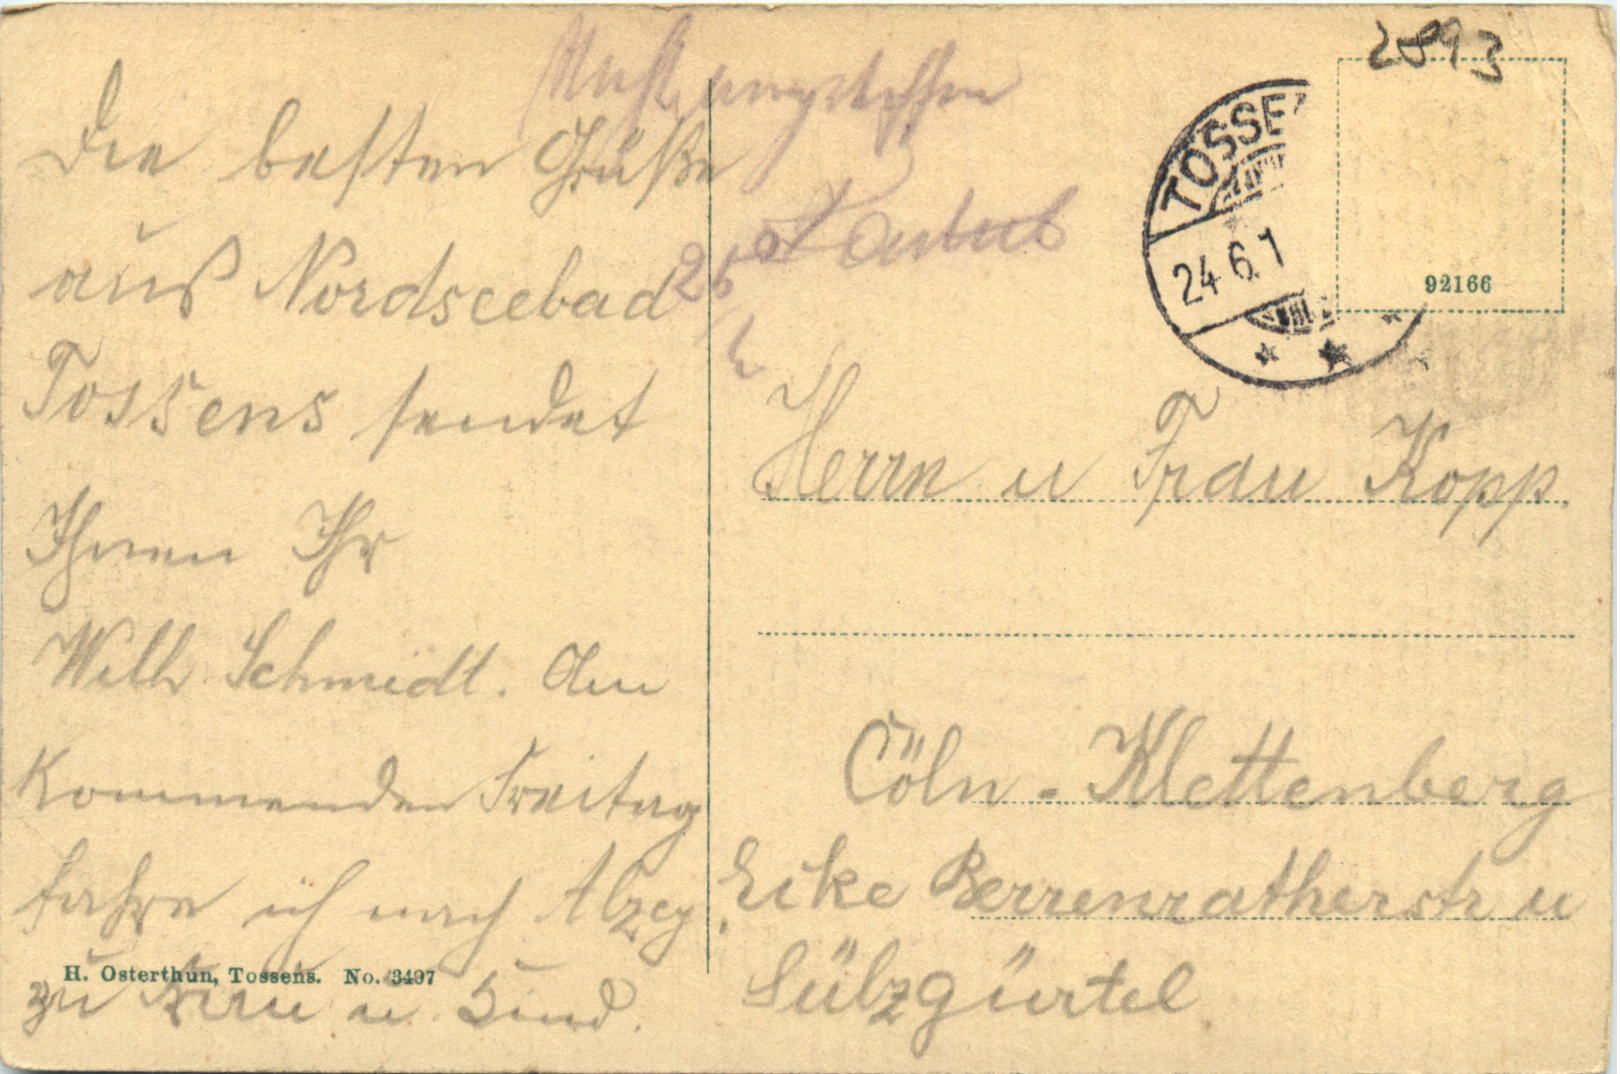 Die besten Grüße
aus Nordseebad
Tossens sendet
Ihnen Ihr
Wilh Schmidt. Am
kommenden Freitag
fahre ich nach Alzey
zu Frau u. Kind.
H. Osterthun, Tossens. No. 3497
2893
TOSSE
24.6.1
92166
Herrn u Frau Kopp
Cöln-Klettenberg
Ecke Berrenratherstr u
Sülzgürtel